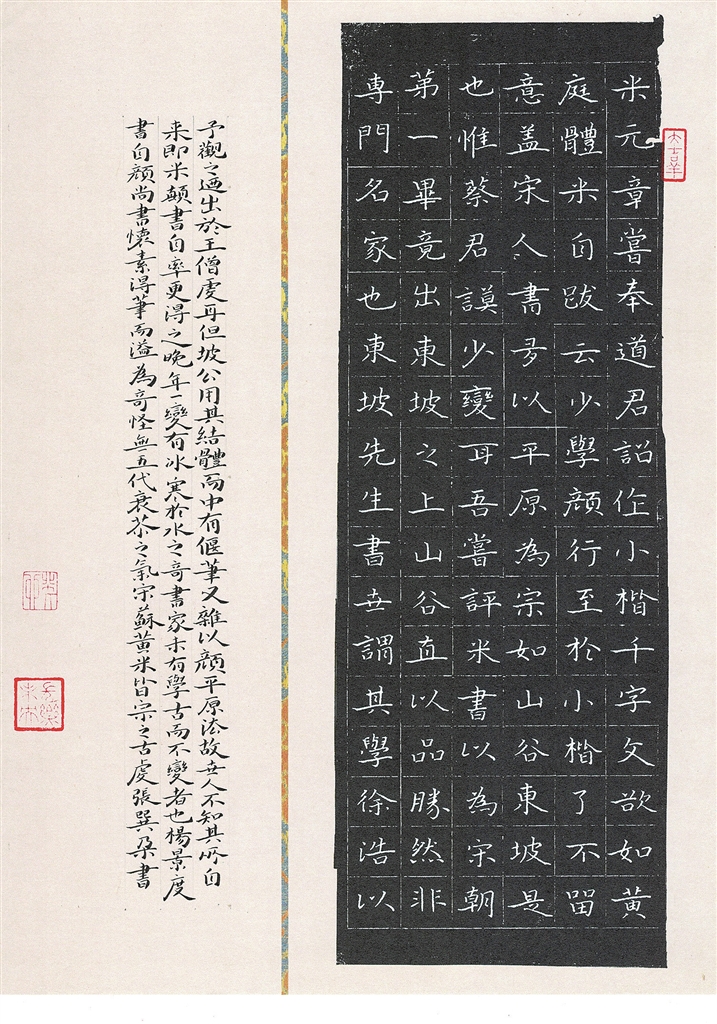 米元章嘗奉道君詔作小楷千字文欲如黃
庭體米自跋云少學顏行至於小楷了不留
意蓋宋人書多以平原為宗如山谷東坡是
也惟蔡君謨少變耳吾嘗評米書以為宋朝
第一畢竟出東坡之上山谷直以品勝然非
專門名家也東坡先生書世謂其學徐浩以
予觀之迺出於王僧虔耳但坡公用其結體而中有偃筆又雜以顏平原法故世人不知其所自
来即米顛書自率更得之晚年一變有冰寒於水之奇書家未有學古而不變者也楊景度
書自顏尚書懷素得筆而溢為奇怪無五代衰苶之氣宋蘇黃米皆宗之古虔張巽朶書
大吉羊